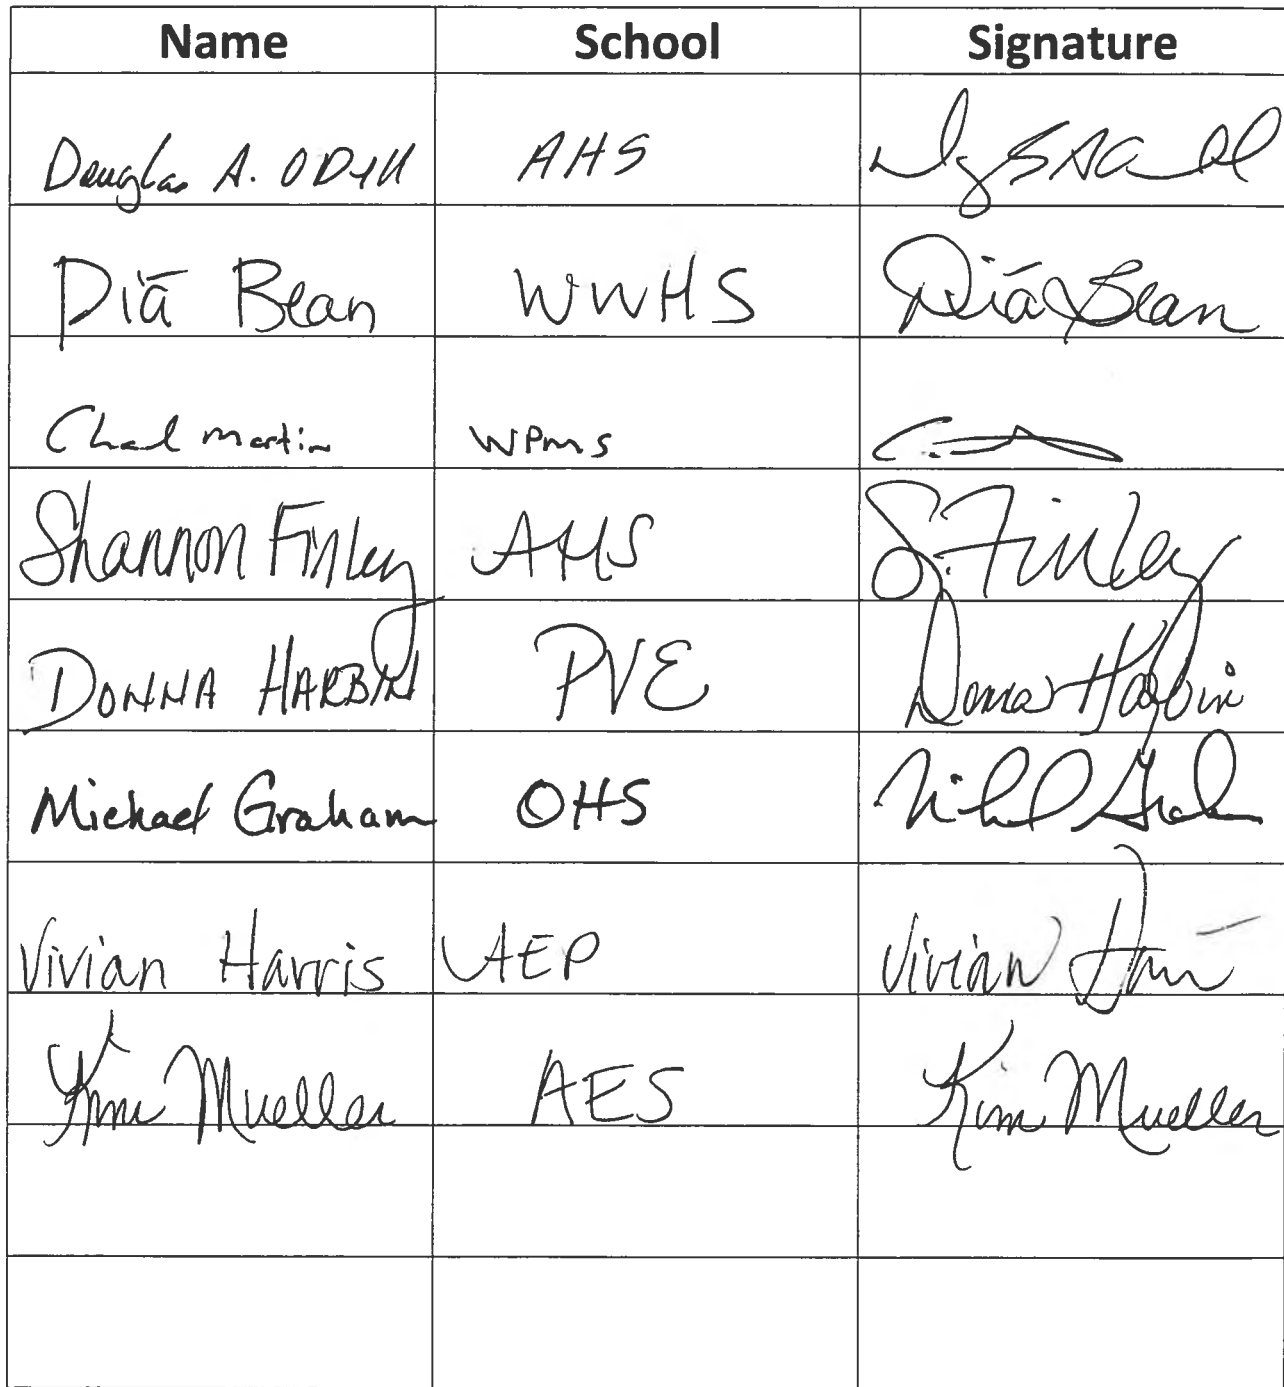 Name School Signature
Douglas A. ODell AHS
Diā Bean WWHS Diā Bean
Chad Martin WPMS
Shannon Finley AHS S. Finley
DONNA HARBIN PVE Donna Harbin
Michael Graham OHS Michael Graham
Vivian Harris AEP Vivian Harris
Kim Mueller AES Kim Mueller